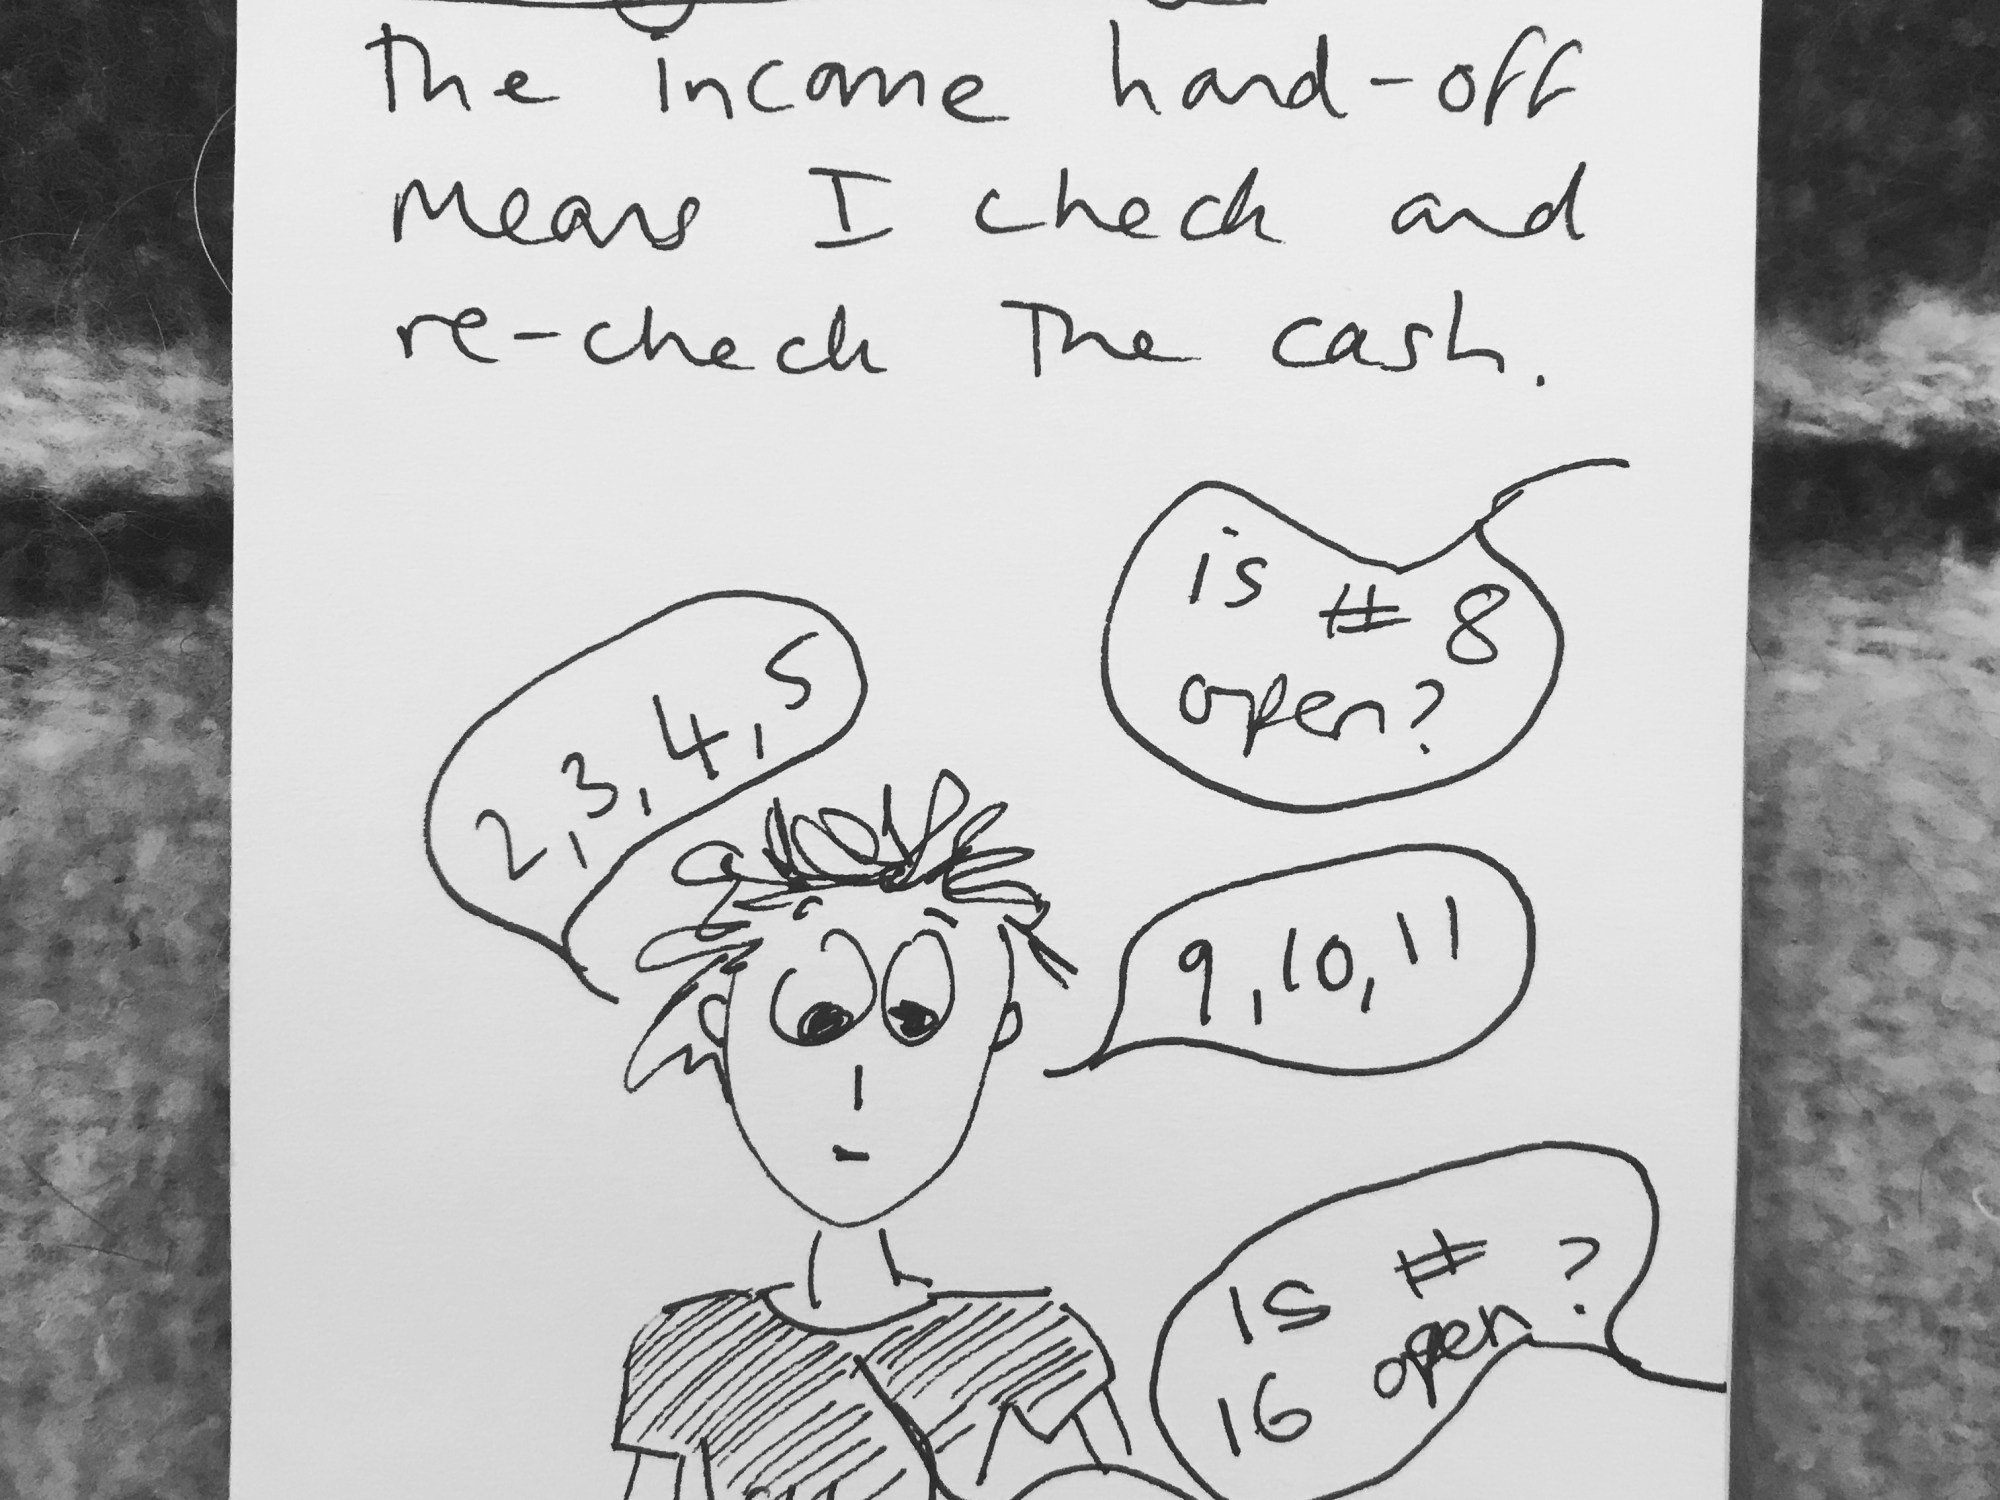 The income hand-off
means I check and
re-check The cash.
is # 8
open?
2, 3, 4, 5
9, 10, 11
Is # ?
16 open